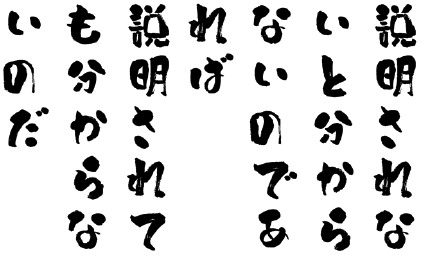 説明されな
いと分から
ないのであ
れば
説明されて
も分からな
いのだ